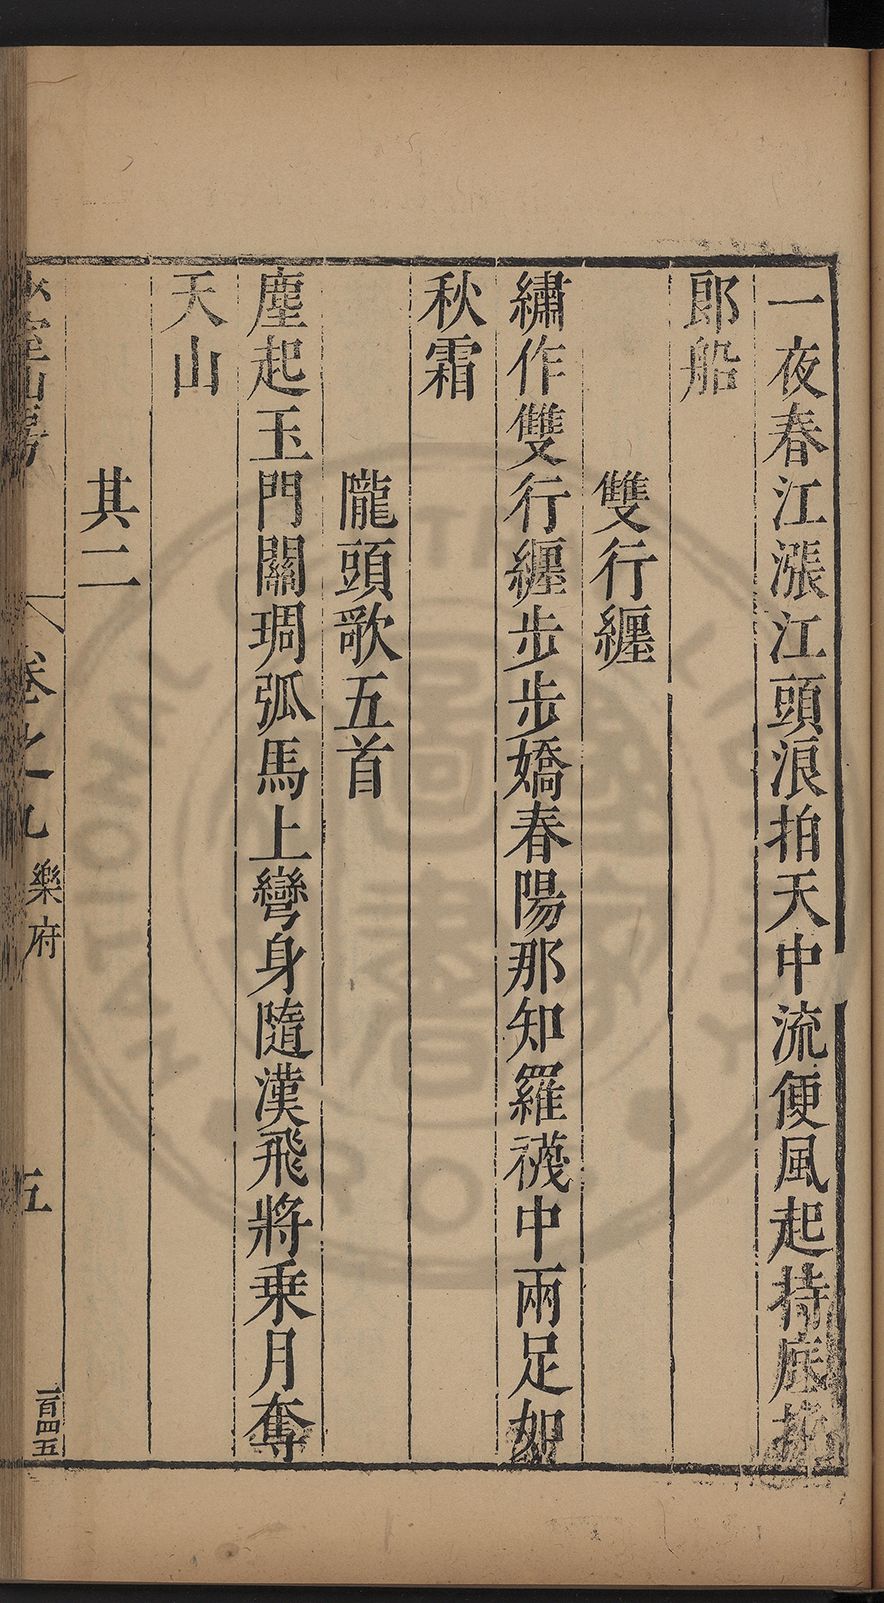 一夜春江漲江頭浪拍天中流便風起持底
郎船
雙行纏
繡作雙行纏步步嬌春陽那知羅襪中兩足如
秋霜
隴頭歌五首
塵起玉門關琱弧馬上彎身隨漢飛將乗月奪
天山
其二
少室山房
卷之九 樂府
五
一百四五